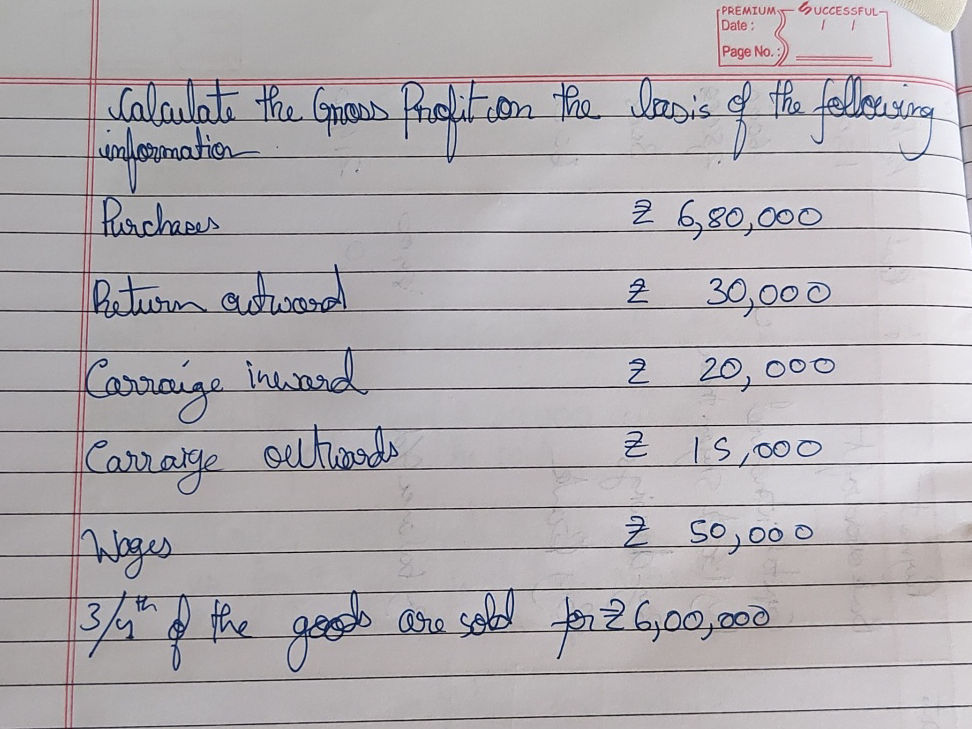 PREMIUM SUCCESSFUL
Date : / /
Page No. :
Calculate the Gross Profit on the basis of the following
information
Purchases ₹ 6,80,000
Return outward ₹ 30,000
Carraige inward ₹ 20,000
Carraige outwards ₹ 15,000
Wages ₹ 50,000
3/4th of the goods are sold for ₹ 6,00,000